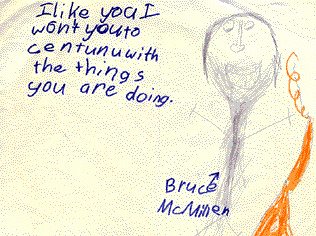 I like you I
wont you to
centunu with
the things
you are doing.
Bruce
McMillen